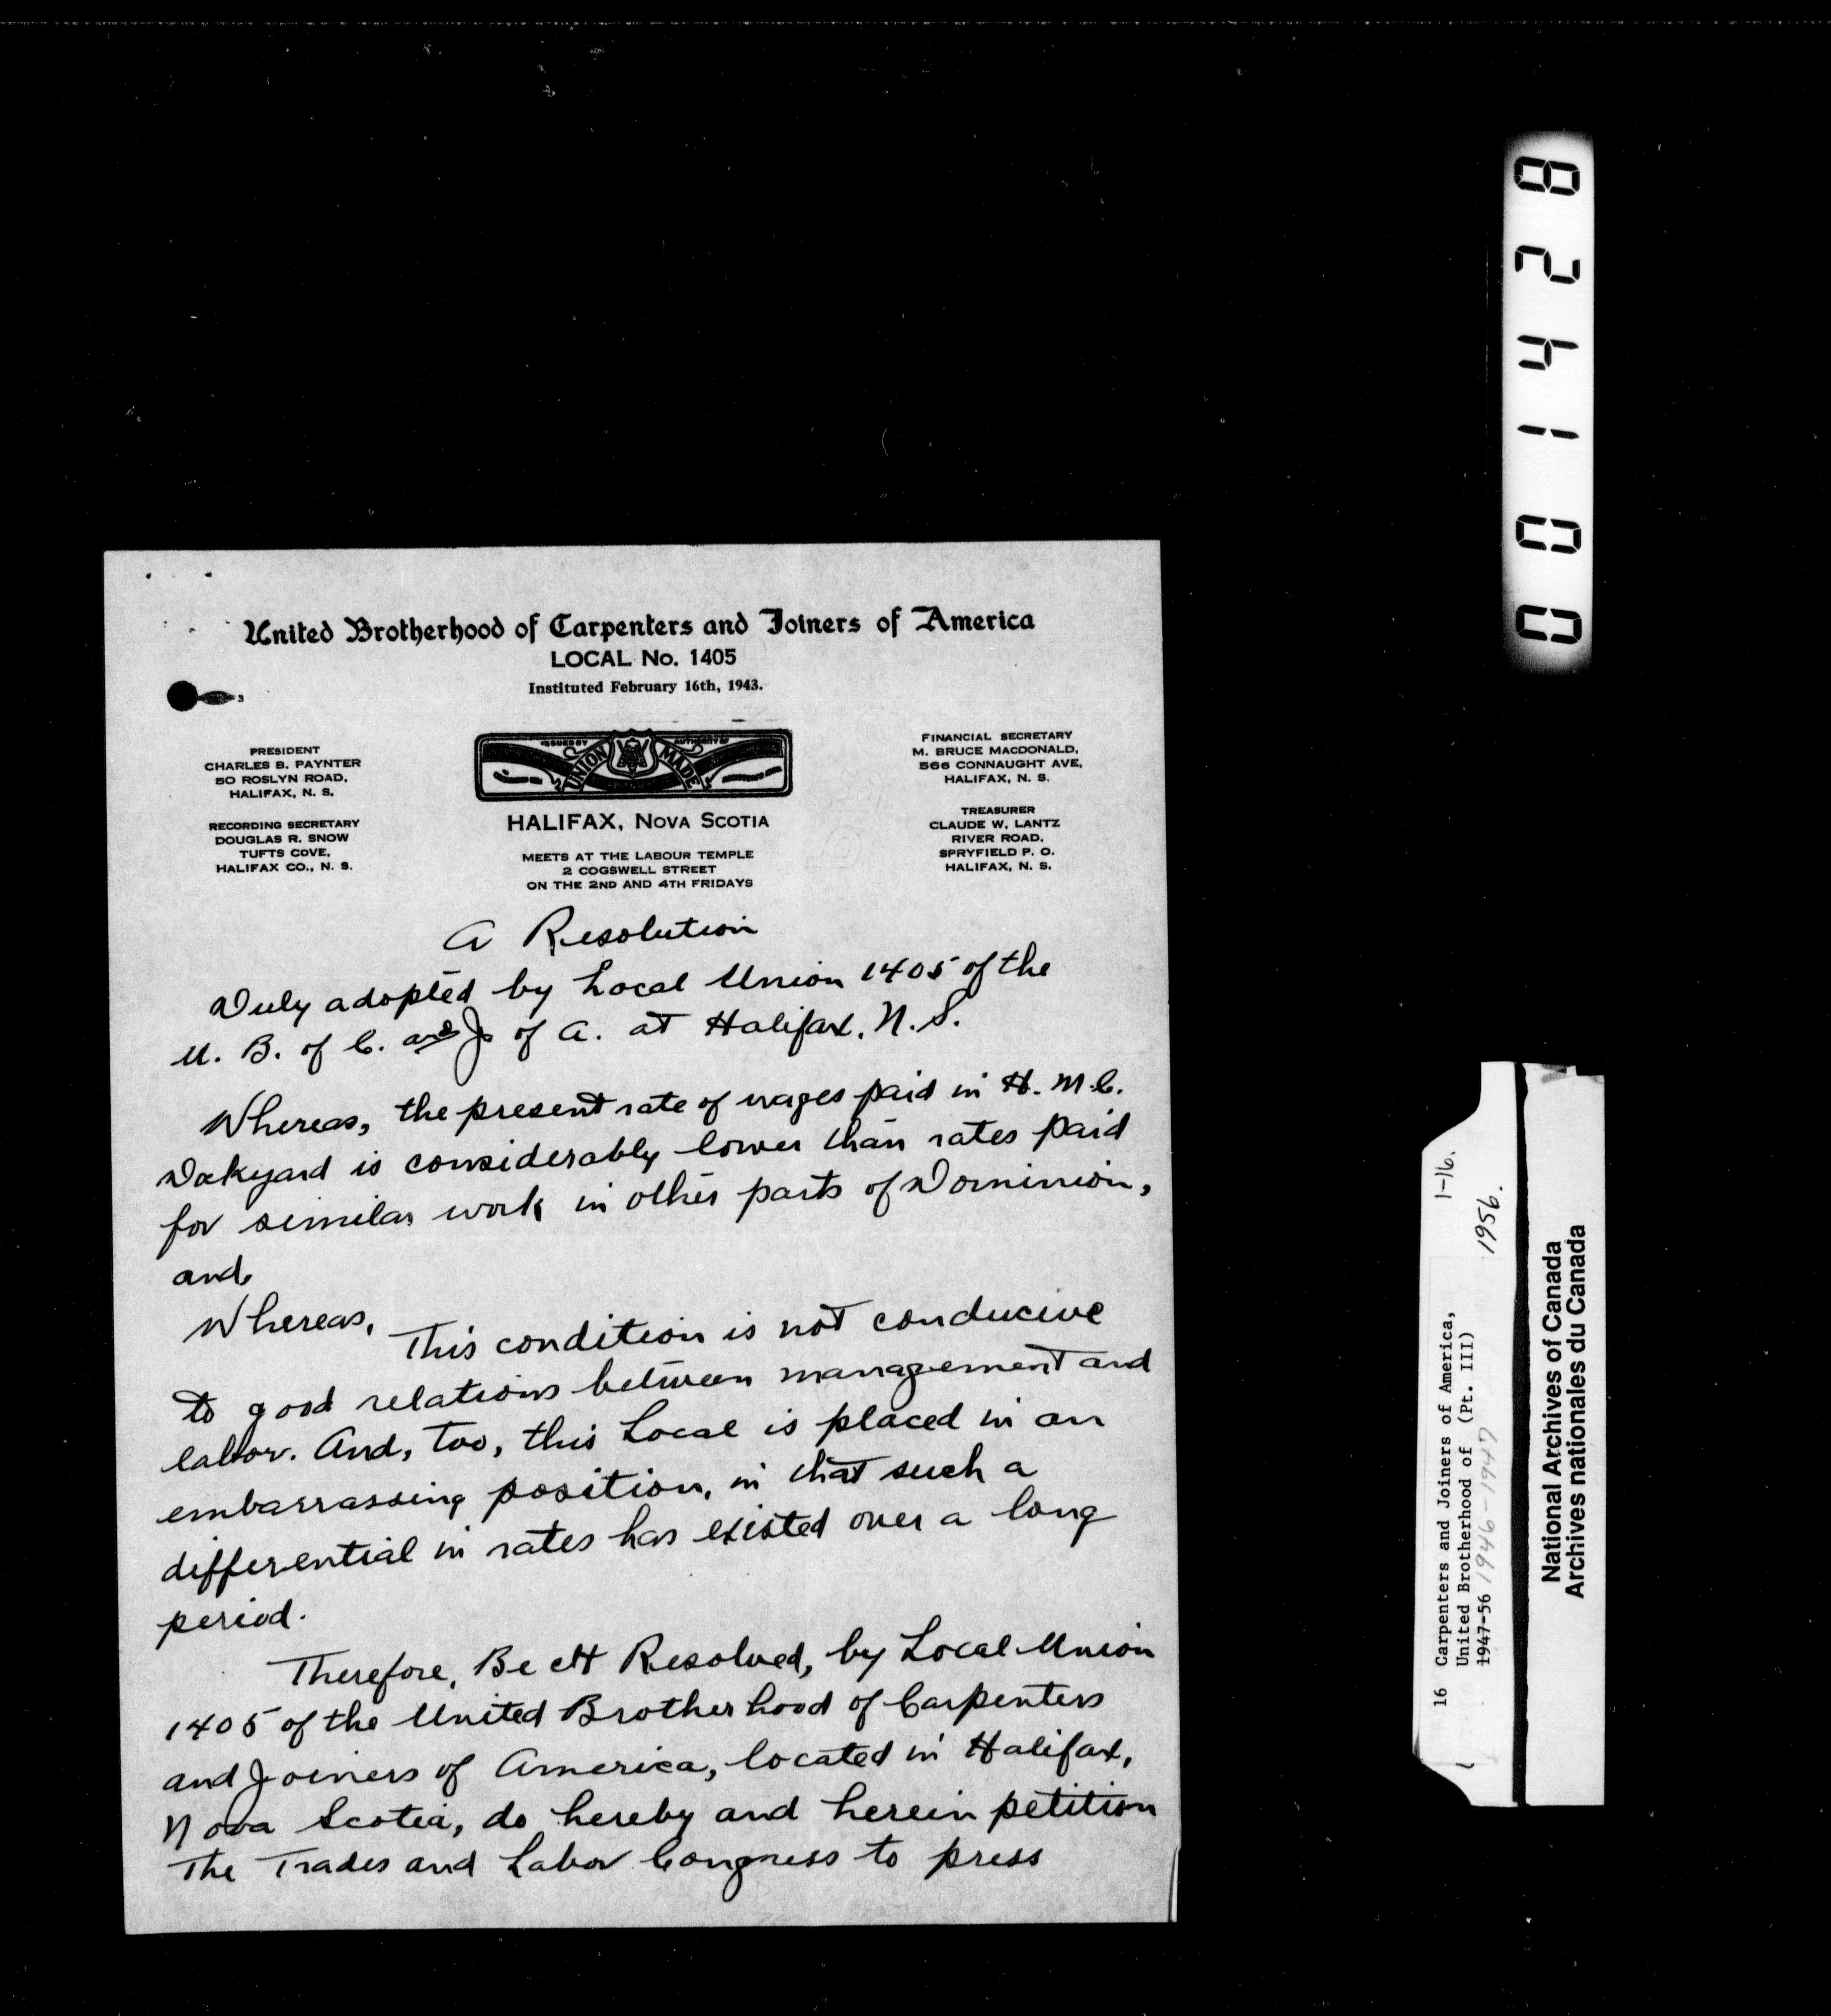 United Brotherhood of Carpenters and Joiners of America
LOCAL No. 1405
Instituted February 16th, 1943.
3
PRESIDENT
CHARLES B. PAYNTER
50 ROSLYN ROAD,
HALIFAX, N. S.
RECORDING SECRETARY
DOUGLAS R. SNOW
TUFTS COVE,
HALIFAX CO., N. S.
ISSUED BY AUTHORITY OF
UNION MADE
HALIFAX, NOVA SCOTIA
MEETS AT THE LABOUR TEMPLE
2 COGSWELL STREET
ON THE 2ND AND 4TH FRIDAYS
FINANCIAL SECRETARY
M. BRUCE MACDONALD,
566 CONNAUGHT AVE,
HALIFAX, N. S.
TREASURER
CLAUDE W. LANTZ
RIVER ROAD,
SPRYFIELD P. O.
HALIFAX, N. S.
A Resolution
Duly adopted by Local Union 1405 of the
U. B. of C. and J. of A. at Halifax, N. S.
Whereas, the present rate of wages paid in H. M. C.
Dockyard is considerably lower than rates paid
for similar work in other parts of Dominion,
and,
Whereas, This condition is not conducive
to good relations between management and
labor. And, too, this Local is placed in an
embarrassing position, in that such a
differential in rates has existed over a long
period.
Therefore, Be It Resolved, by Local Union
1405 of the United Brotherhood of Carpenters
and Joiners of America, located in Halifax,
Nova Scotia, do hereby and herein petition
The Trades and Labor Congress to press
001428
16 Carpenters and Joiners of America, 1-16.
United Brotherhood of (Pt. III)
1947-56 1946-1947 1956.
National Archives of Canada
Archives nationales du Canada